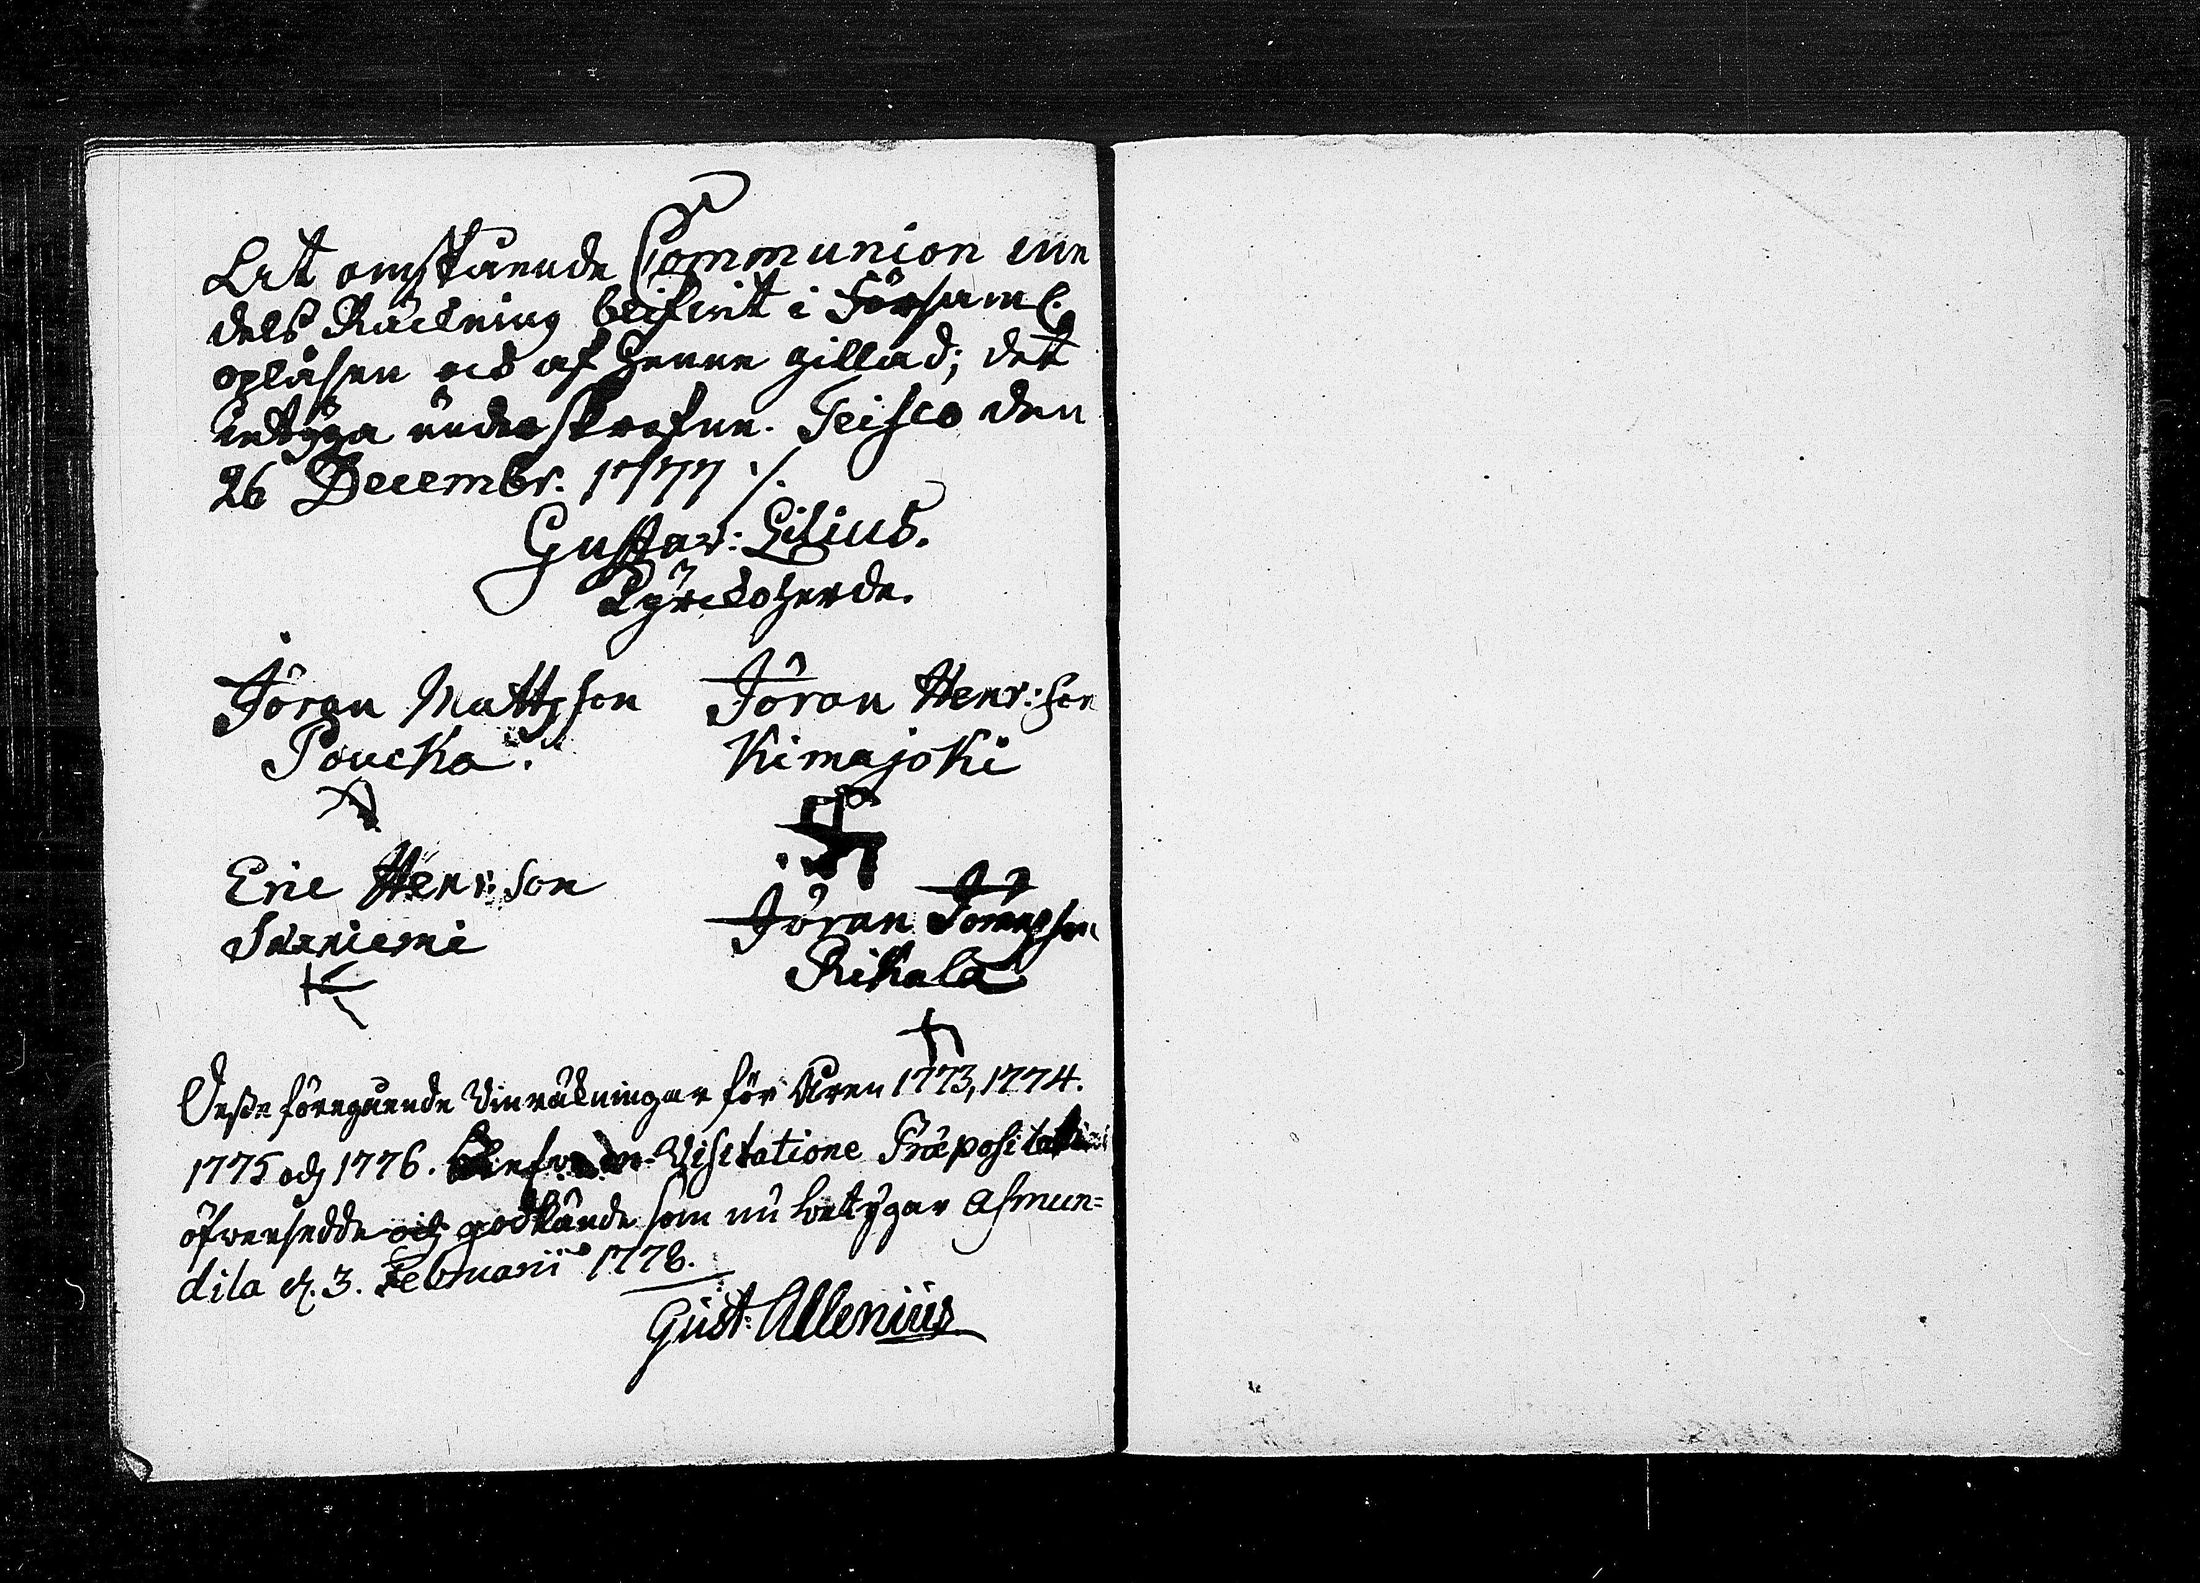 At omstående Communion vin
dels Räckning blifvit i Församl.
opläsen och af henne gillad; det
intyga underskrefne. Teisco den
26 Decembr. 1777 ./.
Gustav: Lilius.
Kyrckoherde.
Jöran Mattsson Jöran Henr:son
Poucka. Kimajoki
Eric Henr:son Jöran Jöransson
Saxniemi Rikala
Desse föregående Vinräkningar för Åren 1773, 1774.
1775 och 1776. Visitatione Præpositali
öfversedde och godkände som nu betygar Asmun=
dila d. 3. Februarii 1778.
Gust: Allenius